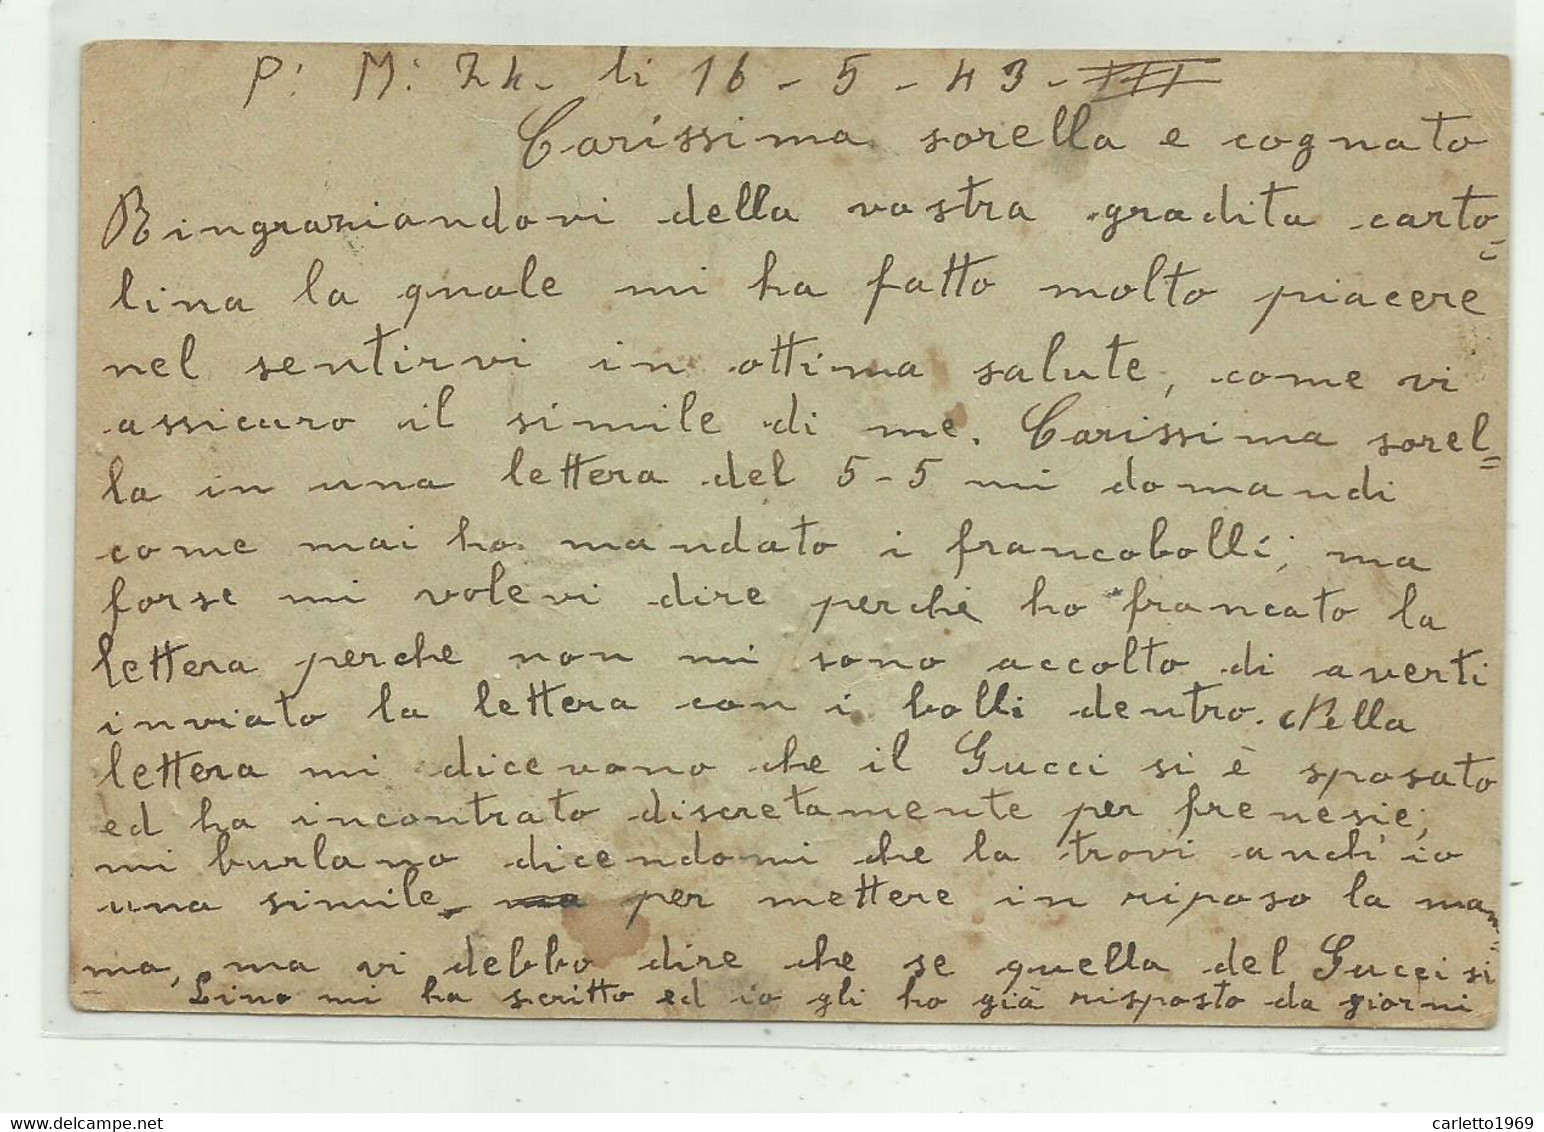 P. M. 74. li 16 - 5 - 43 - XXI
Carissima sorella e cognato
Ringraziandovi della vostra gradita carto=
lina la quale mi ha fatto molto piacere
nel sentirvi in ottima salute, come vi
assicuro il simile di me. Carissima sorel=
la in una lettera del 5-5 mi domandi
come mai ho mandato i francobolli; ma
forse mi volevi dire perché ho francato la
lettera perche non mi sono accolto di averti
inviato la lettera con i bolli dentro. Nella
lettera mi dicevano che il Gucci si è sposato
ed ha incontrato discretamente per frenesie;
mi burlano dicendomi che la trovi anch'io
una simile per mettere in riposo la mam=
ma, ma vi debbo dire che se quella del Gucci si
Lino mi ha scritto ed io gli ho già risposto da giorni
carletto1969